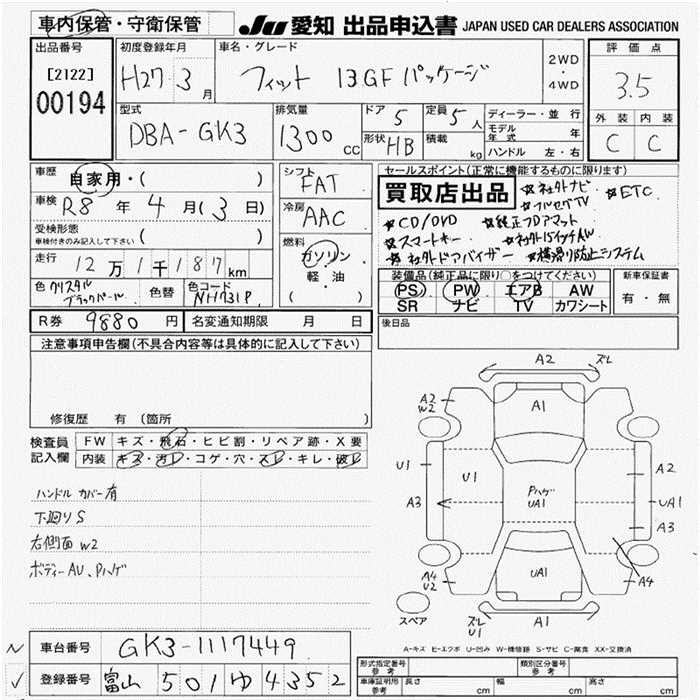 車内保管・守衛保管
JU 愛知 出品申込書 JAPAN USED CAR DEALERS ASSOCIATION
出品番号
[2122]
00194
初度登録年月
H27年3月
車名・グレード
フィット 13GFパッケージ
2WD
・
4WD
評価点
3.5
外装 内装
C C
型式
DBA-GK3
排気量
1300 cc
ドア 5
形状 HB
定員 5人
積載 kg
ディーラー・並行
モデル年式 年
ハンドル 左・右
車歴 自家用・( )
車検 R8年4月(3日)
受検形態
車検付きのみ記入して下さい ( )
走行 12万1千187km
色 クリスタルブラックパール
色替
色コード NH731P
シフト
FAT
冷房
AAC
燃料
ガソリン
軽・油
( )
セールスポイント(正常に機能するものに限ります)
買取店出品
★社外ナビ ★ETC
★フルセグTV
★CD/DVD ★純正フロアマット
★スマートキー ★社外15インチAW
★社外ドアバイザー ★横滑り防止システム
装備品(純正品に限り○をつけてください)
PS PW エアB AW
SR ナビ TV カワシート
新車保証書
有・無
R券 9880円 名変通知期限 月 日
後日品
注意事項申告欄(不具合内容等は具体的に記入して下さい)
修復歴 有(箇所 )
検査員
記入欄
FW キズ・飛石・ヒビ割・リペア跡・X要
内装 キズ・汚れ・コゲ・穴・スレ・キレ・破れ
ハンドルカバー有
下廻りS
右側面W2
ボディーAU、Pハゲ
A2 ズレ
A2
W2
A1
U1
U1
A3
Pハゲ
UA1
A2
UA1
A3
UA1
A4
U2
A4
スペア
ズレ
U1
A1
A-キズ E-エクボ U-凹み W-補修跡 S-サビ C-腐食 XX-交換済
車台番号 GK3-1117449
登録番号 富山 501 ゆ 4352
形式指定番号
参考
類別区分番号
参考
車庫証明用
参考
長さ cm 幅 cm 高さ cm